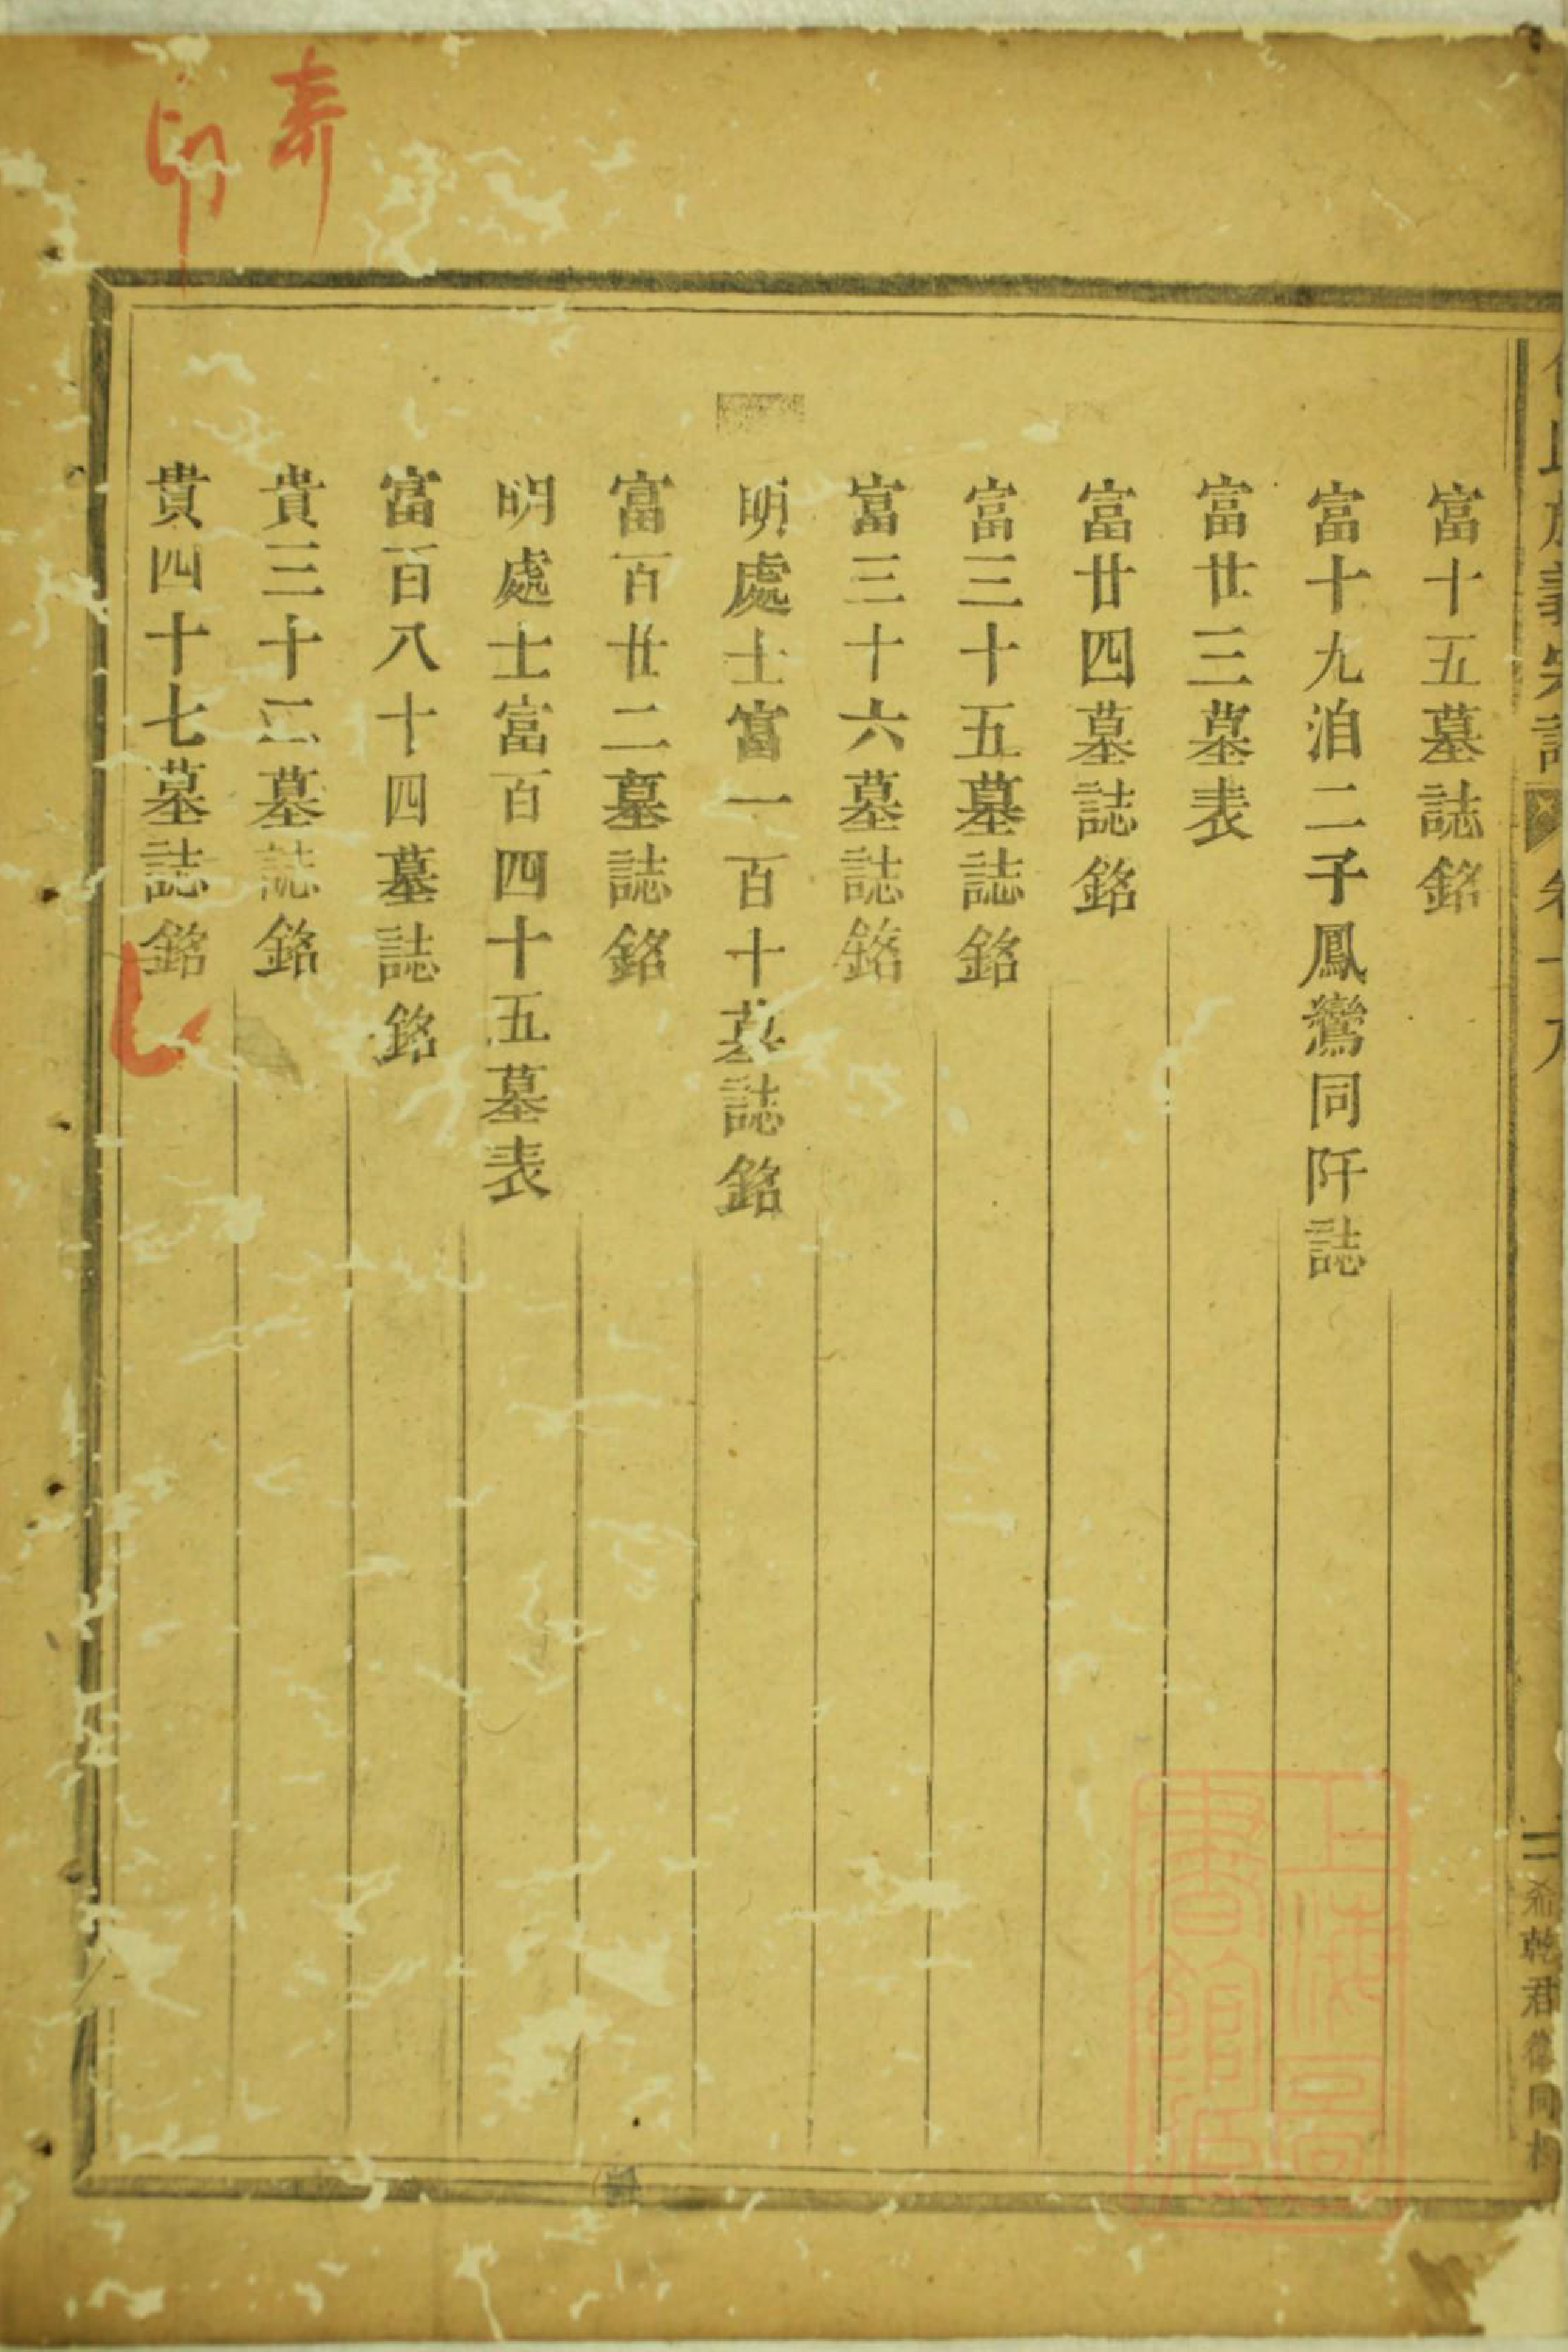 富十五墓誌銘
富十九洎二子鳳鸞同阡誌
富廿三墓表
富廿四墓誌銘
富三十五墓誌銘
富三十六墓誌銘
明處士富一百十墓誌銘
富百廿二墓誌銘
明處士富百四十五墓表
富百八十四墓誌銘
貴三十二墓誌銘
貴四十七墓誌銘
上海圖
書館藏